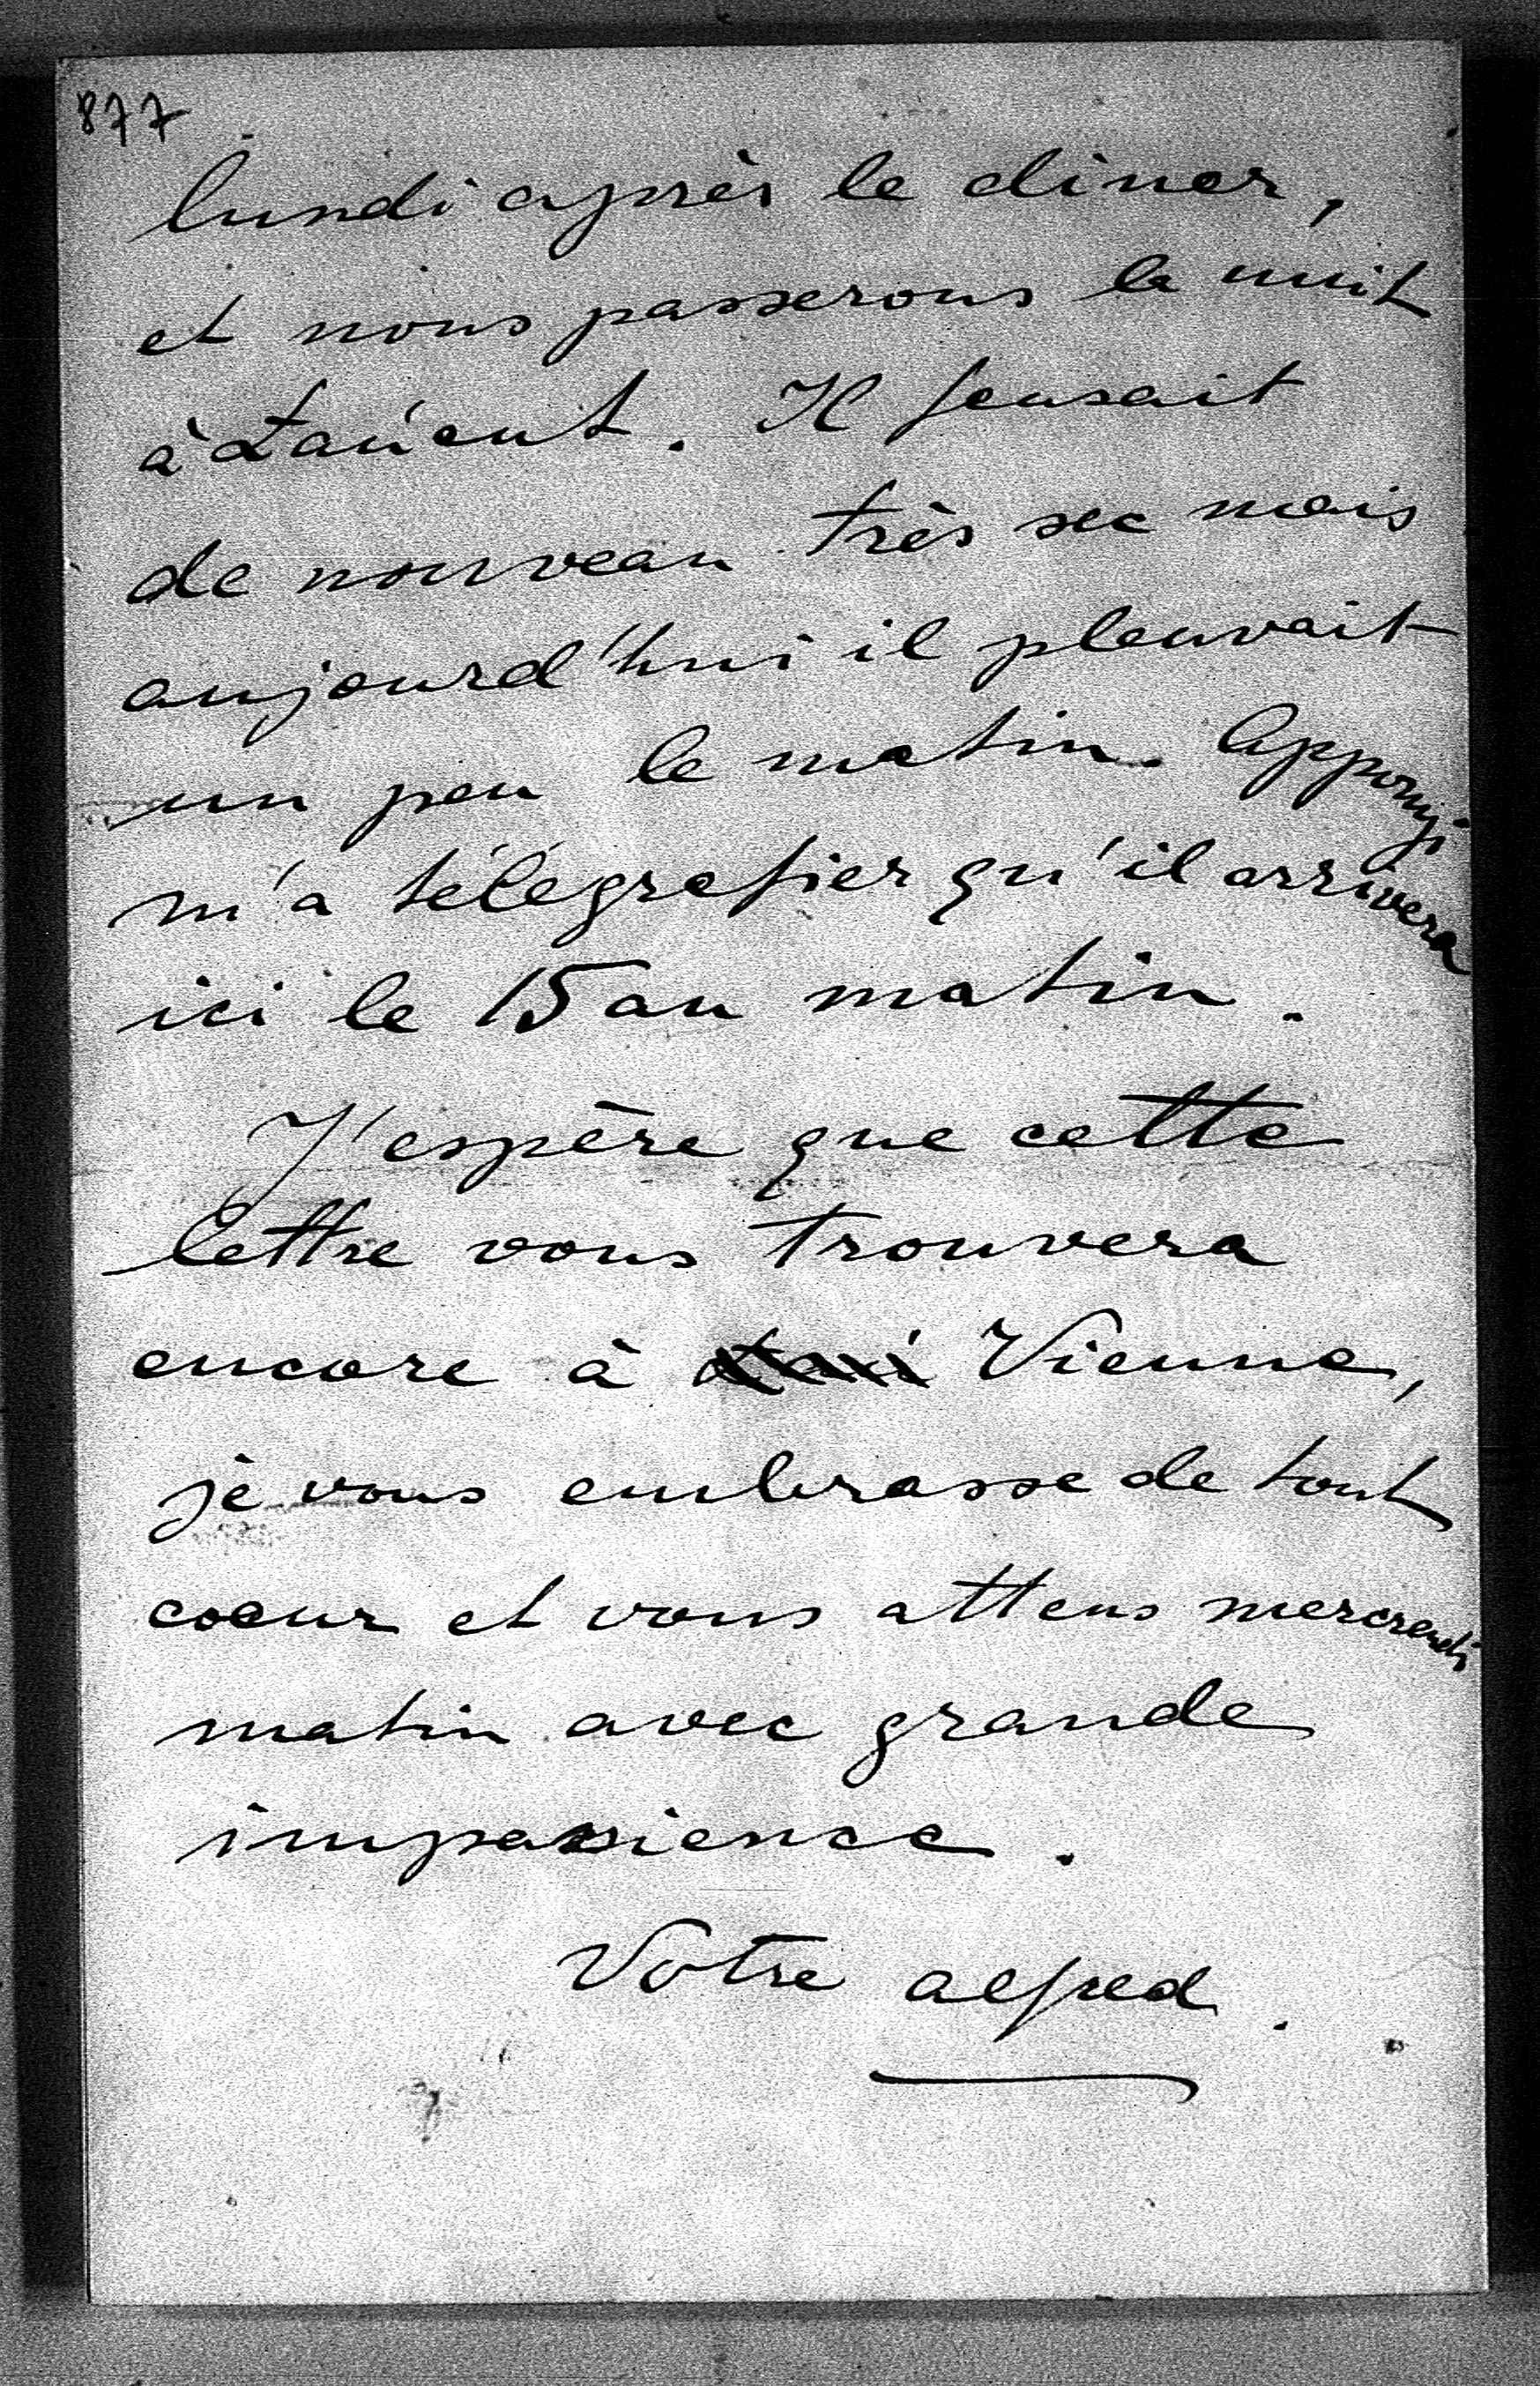 877
lundi après le diner,
et nous passerons la nuit
à Lančut. Il feusait
de nouveau très sec mais
aujourd'hui il pleuvait
un peu le matin. Apponyi
m'a télégrafier qu'il arrivera
ici le 15 au matin.
J'espère que cette
lettre vous trouvera
encore à Vienne,
je vous embrasse de tout
coeur et vous attens mercredi
matin avec grande
impasience.
Votre alfred.